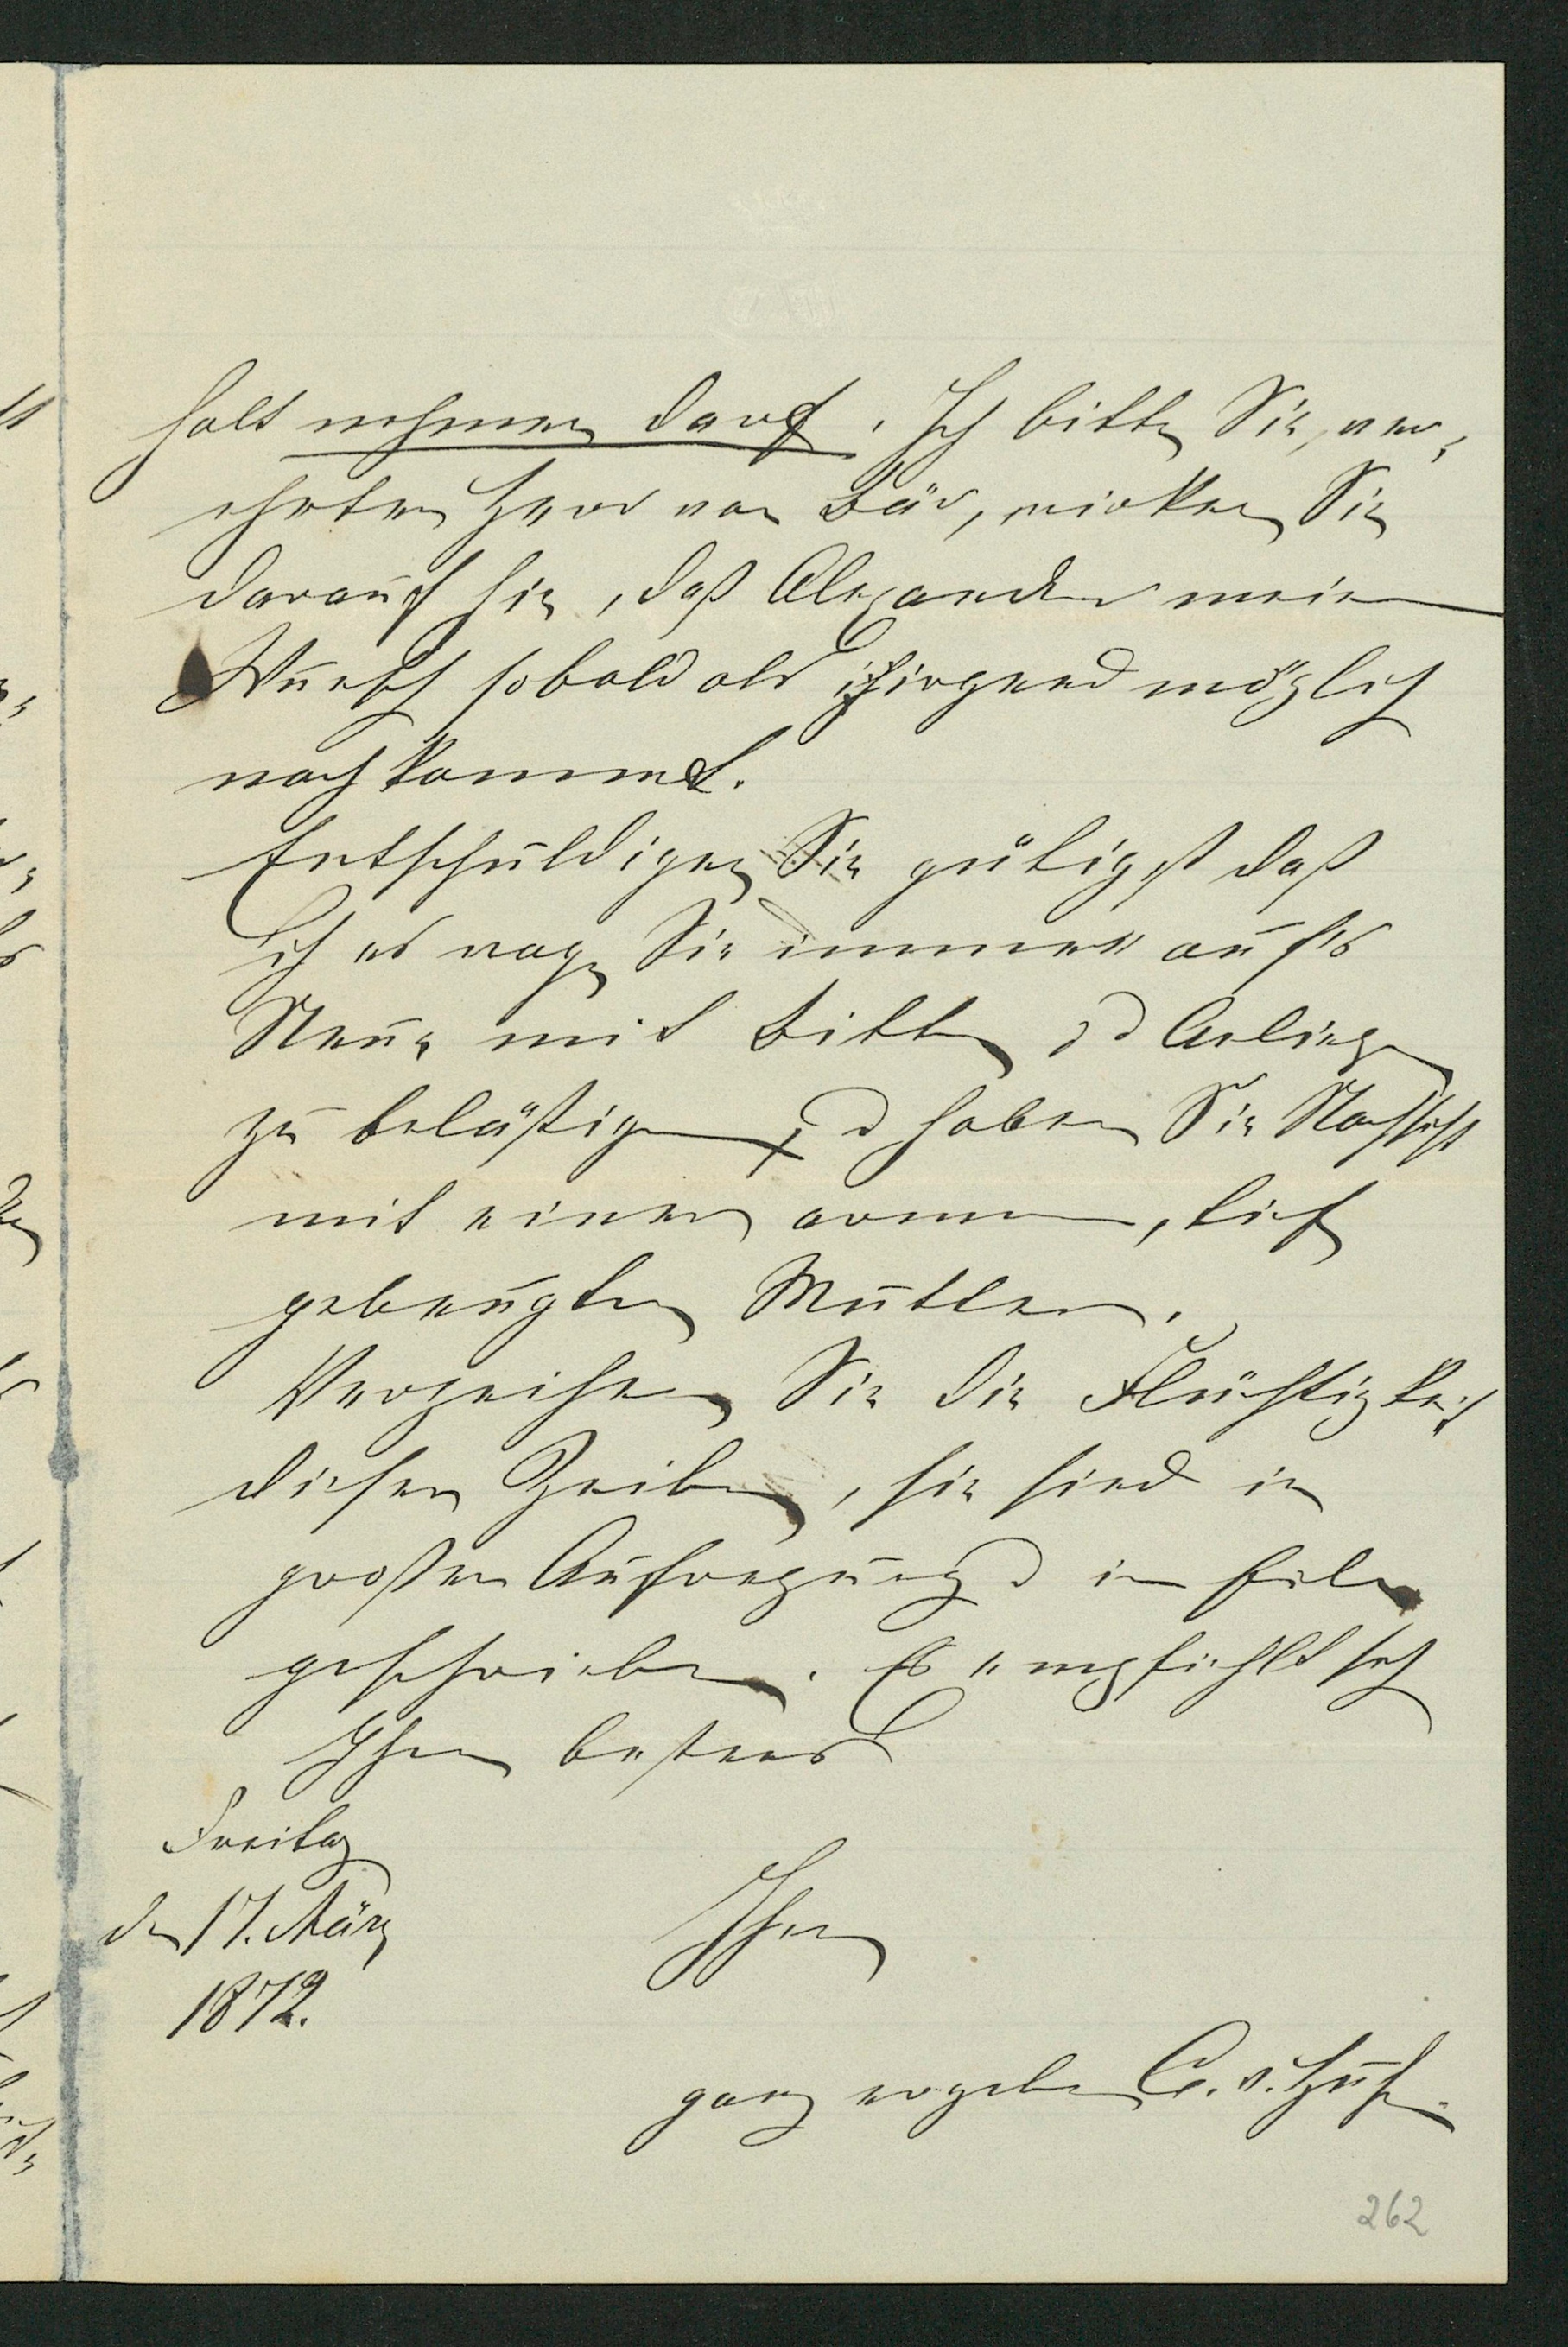 halt nehmen darf. Ich bitte Sie, ver-
ehrter Herr von Bär, wirken Sie
darauf hin, daß Alexander meinem
Wunsch sobald als irgend möglich
nachkommt.
Entschuldigen Sie gütigst daß
ich es wage Sie immer auf's
Neue mit Bitten u Anliegen
zu belästigen, u haben Sie Nachsicht
mit einer armen, tief
gebeugten Mutter.
Verzeihen Sie die Flüchtigkeit
dieser Zeilen, sie sind in
großer Aufregung u in Eile
geschrieben. Es empfiehlt sich
Ihnen bestens
Freitag
den 17. März
1872.
Ihnen
ganz ergeben C. v.
262